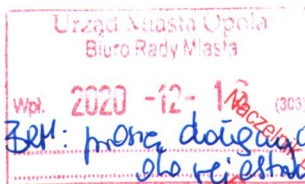 Urząd Miasta Opola
Biuro Rady Miasta
Wpł. 2020 -12- (303)
Naczelnik
BRM: proszę
do rejestru